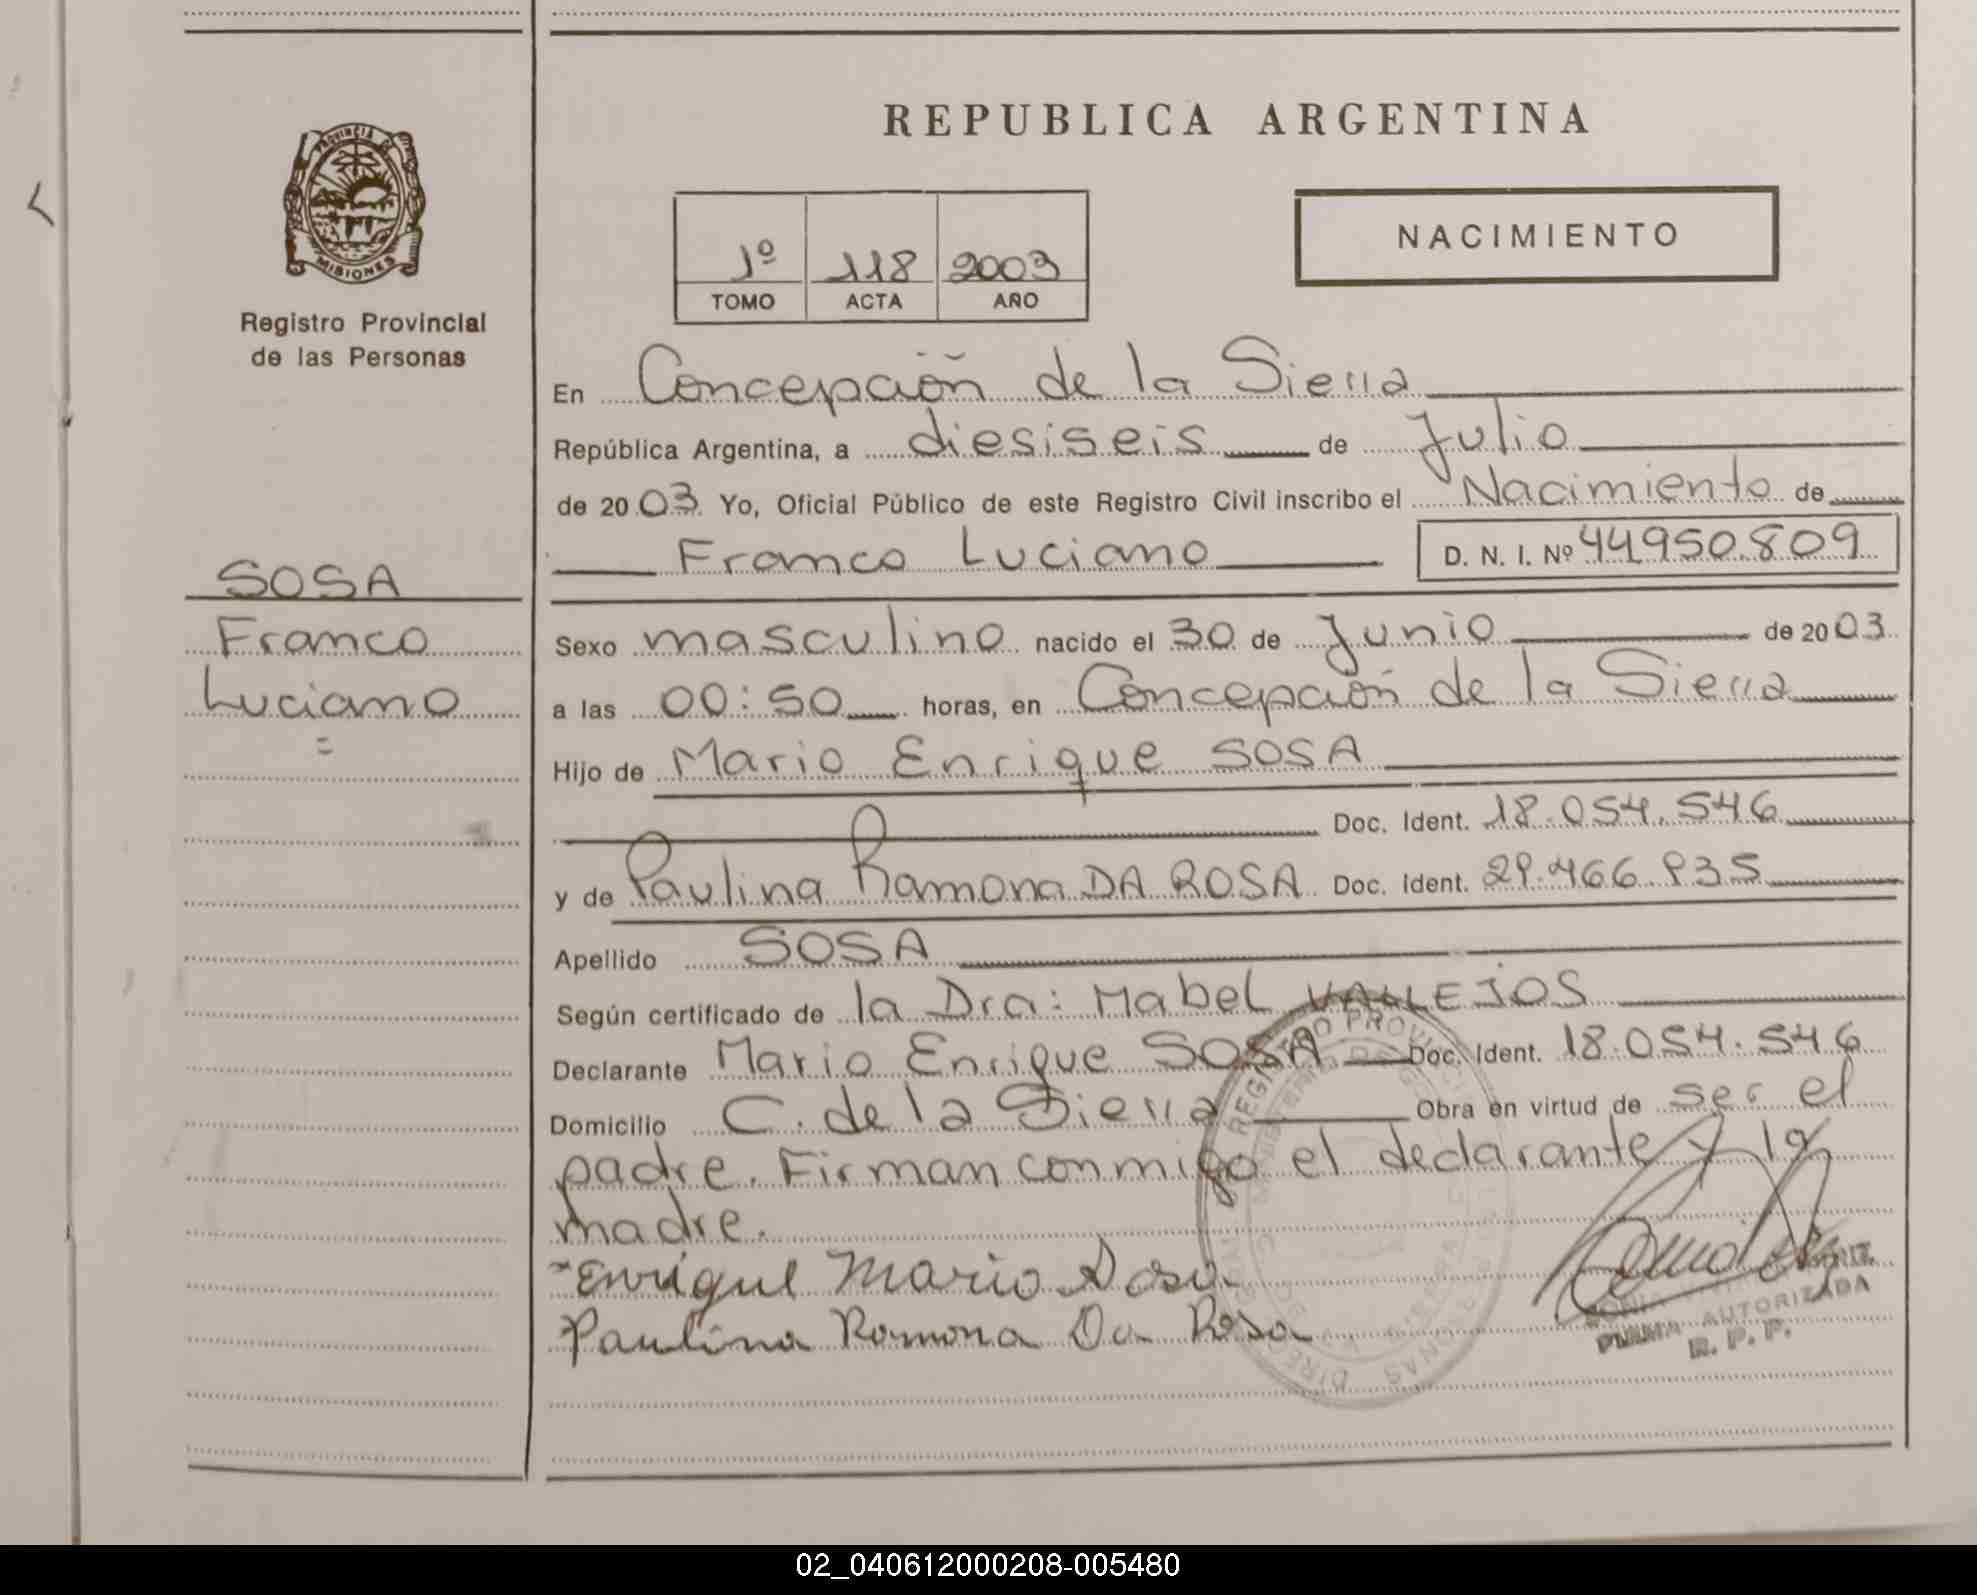 REPUBLICA ARGENTINA
PROVINCIA DE
MISIONES
Registro Provincial
de las Personas
1º 118 2003
TOMO ACTA AÑO
NACIMIENTO
En Concepción de la Sierra
República Argentina, a diesiseis de Julio
de 2003 Yo, Oficial Público de este Registro Civil inscribo el Nacimiento de
Franco Luciano D. N. I. Nº 44950.809
SOSA
Franco
Luciano
Sexo masculino nacido el 30 de Junio de 2003
a las 00:50 horas, en Concepción de la Sierra
Hijo de Mario Enrique SOSA
Doc. Ident. 18.054.546
y de Paulina Ramona DA ROSA Doc. Ident. 29.466.935
Apellido SOSA
Según certificado de la Dra: Mabel VALLEJOS
Declarante Mario Enrique SOSA Doc. Ident. 18.054.546
Domicilio C. de la Sierra Obra en virtud de ser el
padre. Firman conmigo el declarante y la
madre.
Enrique Mario Sosa
Paulina Ramona Da Rosa
AUTORIZADA
R. P. P.
02_040612000208-005480